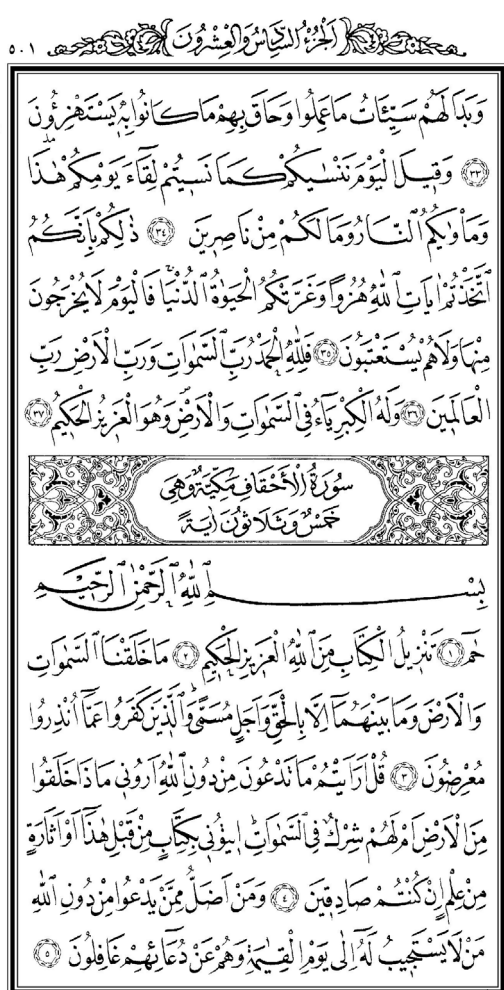 ٥٠١ اَلْجُزْءُ السَّادِسُ وَالْعِشْرُونَ
وَبَدَا لَهُمْ سَيِّئَاتُ مَا عَمِلُوا وَحَاقَ بِهِمْ مَا كَانُوا بِه۪ يَسْتَهْزِؤُ۫نَ
﴿٣٣﴾ وَق۪يلَ الْيَوْمَ نَنْسٰيكُمْ كَمَا نَس۪يتُمْ لِقَٓاءَ يَوْمِكُمْ هٰذَا
وَمَأْوٰيكُمُ النَّارُ وَمَا لَكُمْ مِنْ نَاصِر۪ينَ ﴿٣٤﴾ ذٰلِكُمْ بِاَنَّكُمُ
اتَّخَذْتُمْ اٰيَاتِ اللّٰهِ هُزُوًا وَغَرَّتْكُمُ الْحَيٰوةُ الدُّنْيَاۚ فَالْيَوْمَ لَا يُخْرَجُونَ
مِنْهَا وَلَا هُمْ يُسْتَعْتَبُونَ ﴿٣٥﴾ فَلِلّٰهِ الْحَمْدُ رَبِّ السَّمٰوَاتِ وَرَبِّ الْاَرْضِ رَبِّ
الْعَالَم۪ينَ ﴿٣٦﴾ وَلَهُ الْكِبْرِيَٓاءُ فِي السَّمٰوَاتِ وَالْاَرْضِۖ وَهُوَ الْعَز۪يزُ الْحَك۪يمُ ﴿٣٧﴾
سُورَةُ الْاَحْقَافِ مَكِّيَّةٌ وَهِيَ
خَمْسٌ وَثَلَاثُونَ اٰيَةً
بِسْمِ اللّٰهِ الرَّحْمٰنِ الرَّح۪يمِ
حٰمٓ ﴿١﴾ تَنْز۪يلُ الْكِتَابِ مِنَ اللّٰهِ الْعَز۪يزِ الْحَك۪يمِ ﴿٢﴾ مَا خَلَقْنَا السَّمٰوَاتِ
وَالْاَرْضَ وَمَا بَيْنَهُمَٓا اِلَّا بِالْحَقِّ وَاَجَلٍ مُسَمًّىۜ وَالَّذ۪ينَ كَفَرُوا عَمَّٓا اُنْذِرُوا
مُعْرِضُونَ ﴿٣﴾ قُلْ اَرَاَيْتُمْ مَا تَدْعُونَ مِنْ دُونِ اللّٰهِ اَرُون۪ي مَاذَا خَلَقُوا
مِنَ الْاَرْضِ اَمْ لَهُمْ شِرْكٌ فِي السَّمٰوَاتِۜ ا۪يتُون۪ي بِكِتَابٍ مِنْ قَبْلِ هٰذَٓا اَوْ اَثَارَةٍ
مِنْ عِلْمٍ اِنْ كُنْتُمْ صَادِق۪ينَ ﴿٤﴾ وَمَنْ اَضَلُّ مِمَّنْ يَدْعُوا مِنْ دُونِ اللّٰهِ
مَنْ لَا يَسْتَج۪يبُ لَهُٓ اِلٰى يَوْمِ الْقِيٰمَةِ وَهُمْ عَنْ دُعَٓائِهِمْ غَافِلُونَ ﴿٥﴾